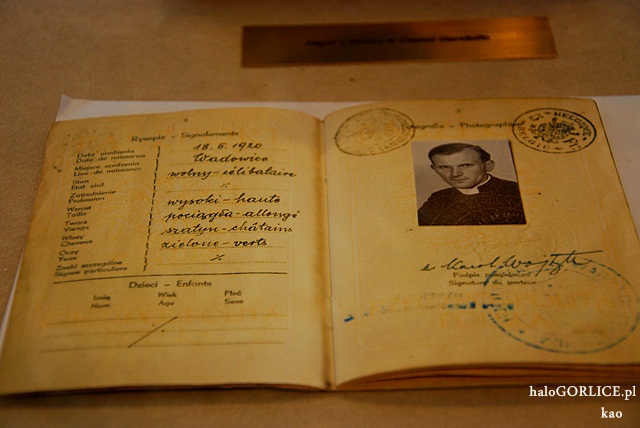 Rysopis – Signalements
Data urodzenia
Date de naissance
18.5.1920
Miejsce urodzenia
Lieu de naissance
Wadowice
Stan
Etat civil
wolny – célibataire
Zatrudnienie
Profession
Wzrost
Taille
wysoki – haute
Twarz
Visage
pociągła – allongé
Włosy
Cheveux
szatyn – châtains
Oczy
Yeux
zielone – verts
Znaki szczególne
Signes particuliers
Dzieci – Enfants
Imię Wiek Płeć
Nom Age Sexe
Fotografia – Photographie
x. Karol Wojtyła
Podpis posiadacza
Signature du porteur
haloGORLICE.pl
kao